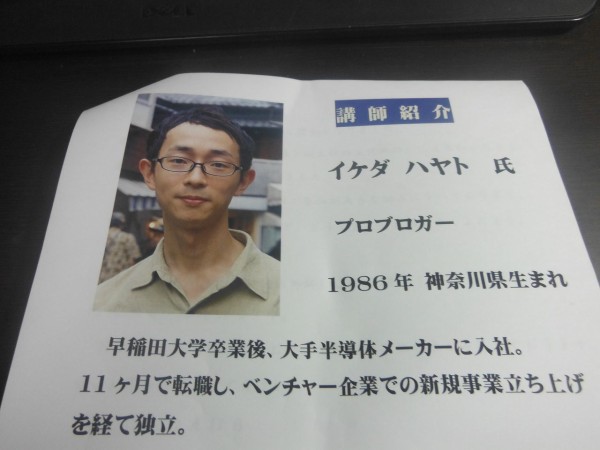 講師紹介
イケダ ハヤト 氏
プロブロガー
1986年 神奈川県生まれ
早稲田大学卒業後、大手半導体メーカーに入社。
11ヶ月で転職し、ベンチャー企業での新規事業立ち上げ
を経て独立。